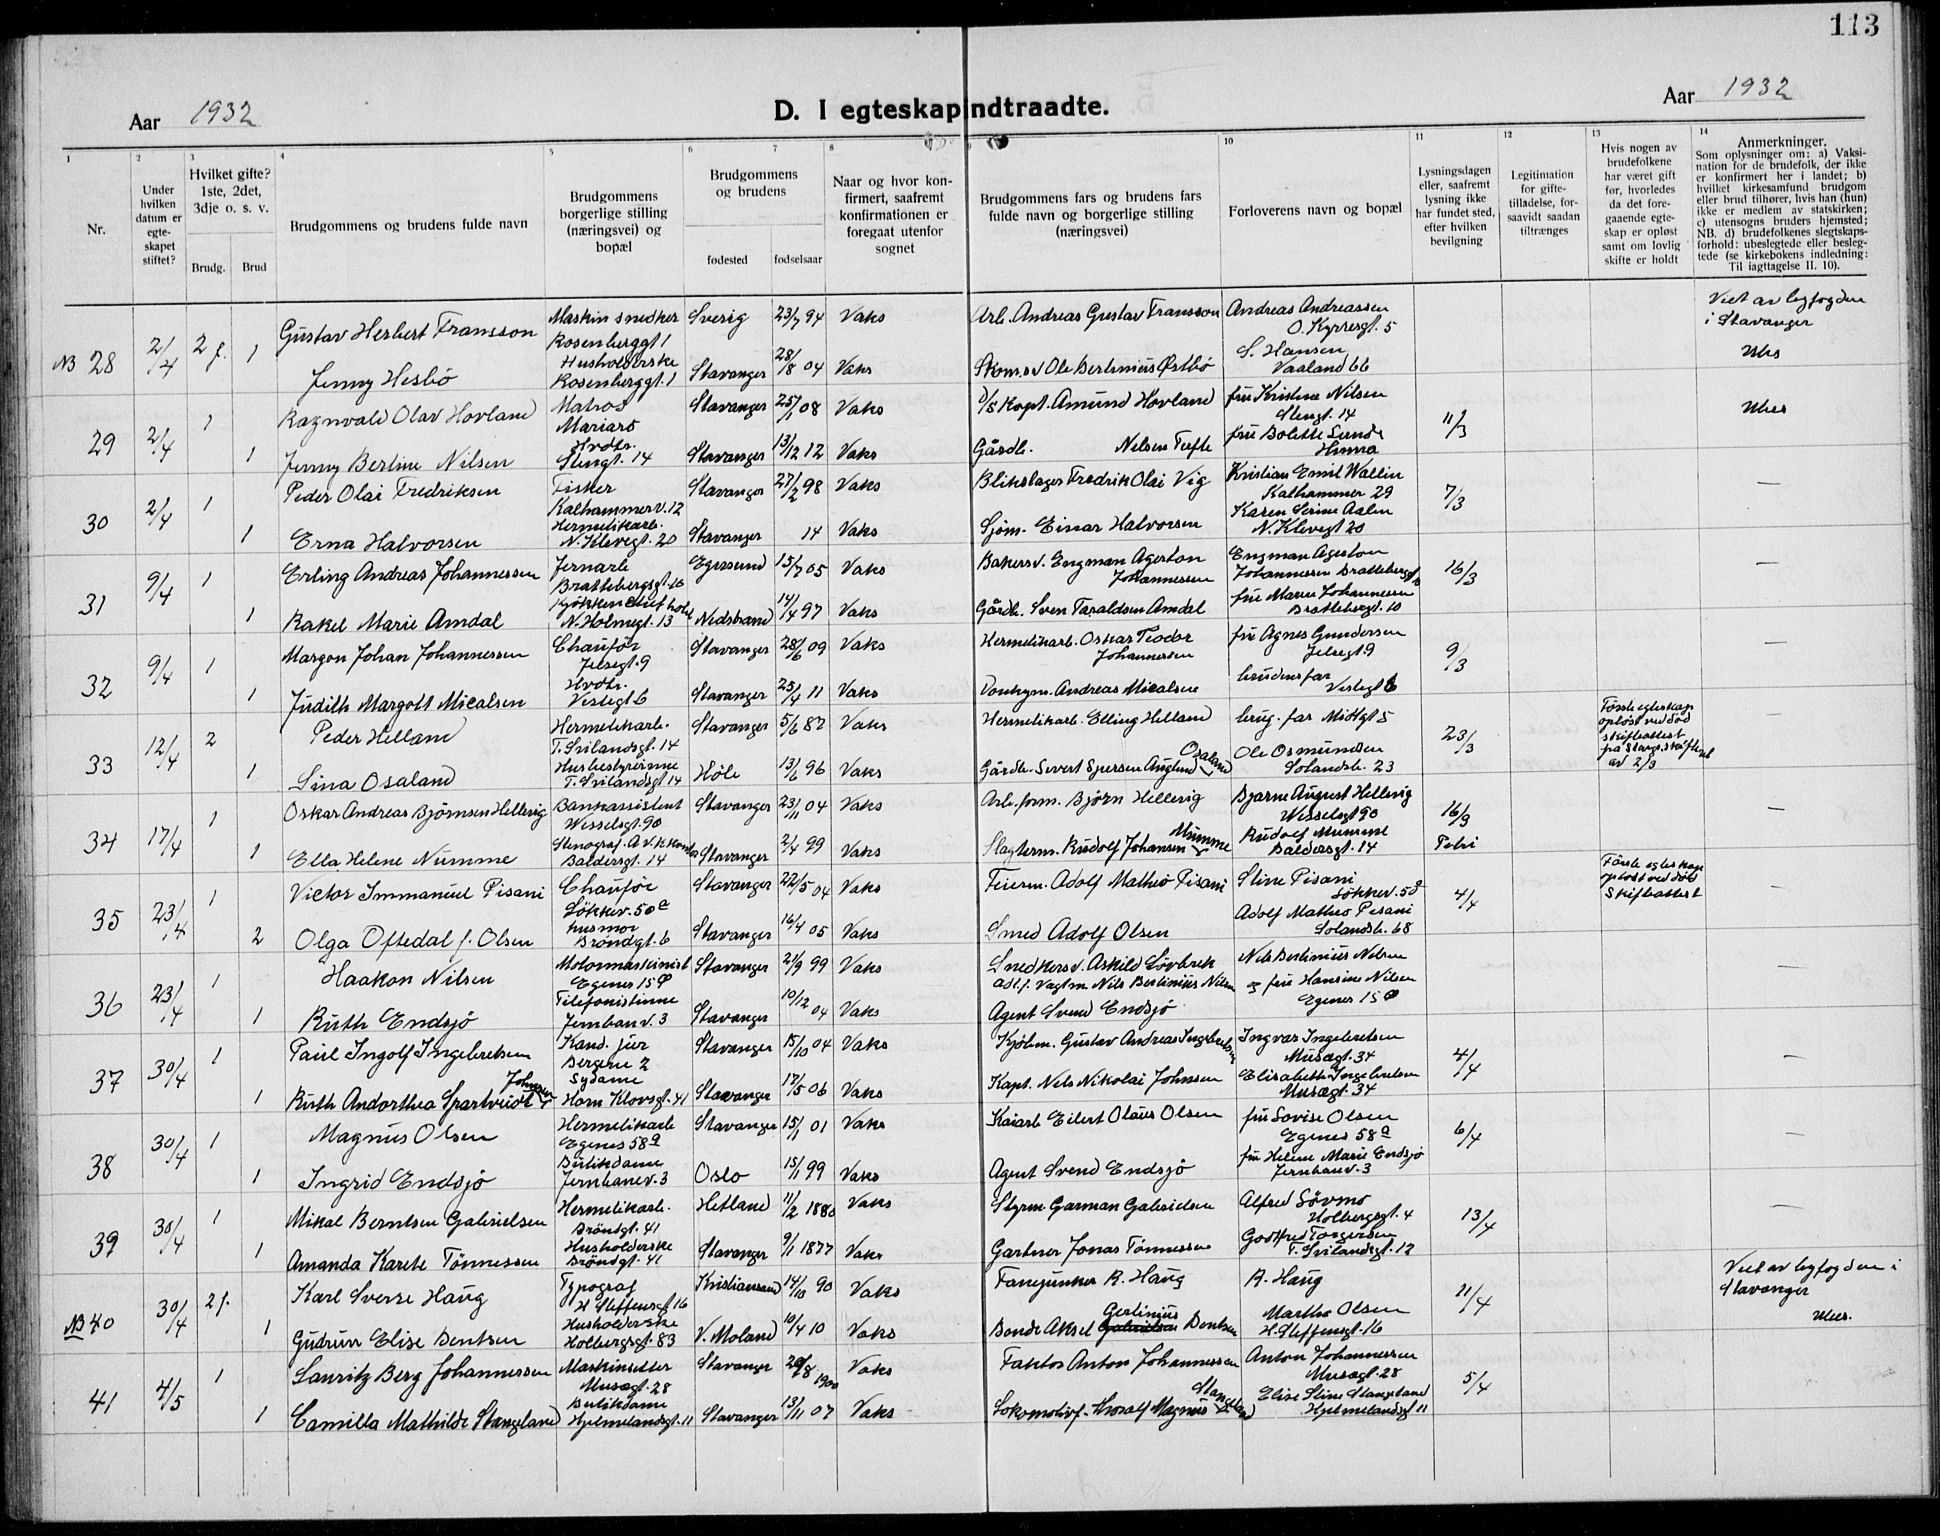 113
Aar 1932
D. I egteskap indtraadte.
Aar 1932
1 2 3 4 5 6 7 8 9 10 11 12 13 14
Nr.
Under hvilken datum er egte-skapet stiftet?
Hvilket gifte? 1ste, 2det, 3dje o. s. v.
Brudg. Brud
Brudgommens og brudens fulde navn
Brudgommens borgerlige stilling (næringsvei) og bopæl
Brudgommens og brudens
fødested fødselsaar
Naar og hvor kon-firmert, saafremt konfirmationen er foregaat utenfor sognet
Brudgommens fars og brudens fars fulde navn og borgerlige stilling (næringsvei)
Forloverens navn og bopæl
Lysningsdagen eller, saafremt lysning ikke har fundet sted, efter hvilken bevilgning
Legitimation for gifte-tilladelse, for-saavidt saadan tiltrænges
Hvis nogen av brudefolkene har været gift før, hvorledes da det fore-gaaende egte-skap er opløst samt om lovlig skifte er holdt
Anmerkninger.
Som oplysninger om: a) Vaksi-nation for de brudefolk, der ikke er konfirmert her i landet; b) hvilket kirkesamfund brudgom eller brud tilhører, hvis han (hun) ikke er medlem av statskirken; c) utensogns bruders hjemsted; NB. d) brudefolkenes slegtskaps-forhold: ubeslegtede eller besleg-tede (se kirkebokens indledning: Til iagttagelse II. 10).
NB 28 2/4 2 f. 1
Gustav Herbert Fransson Maskinsnedker Rosenberggt 1 Sverig 23/7 94 Vaks Arb. Andreas Gustav Fransson Andreas Andreassen O. Kyrresgt. 5 Viet av byfogden i Stavanger
Jenny Hesbø Husholderske Rosenberggt. 1 Stavanger 28/8 04 Vaks Ole Bertinius Østbø S. Hansen Vaaland 66
29 2/4 1 1
Ragnvald Olav Hovland Matros Stavanger 25/1 08 Vaks D/S Kapt. Amund Hovland fru Kristine Nilsen Stengt. 14 11/3
Jenny Bertine Nilsen Hvdtr. Stengt. 14 Stavanger 13/12 12 Vaks Gårdb. Nelsen Tufte fru Bolette Sunde Hinna
30 2/4 1 1
Peder Olai Fredriksen Fisker Kalhammerv. 12 Stavanger 27/2 98 Vaks Blikslager Fredrik Olai Vig Kristian Emil Wallin Kalhammer 29 7/3 —
Erna Halvorsen Hermetikarb. N. Klevegt. 20 Stavanger 14 Vaks Sjøm. Einar Halvorsen Karen Serine Aalen N. Klevegt 20
31 9/4 1 1
Erling Andreas Johannessen Jernarb Brattebergsgt. 10 Egersund 15/7 05 Vaks Bakersv. Engman Agerton Johannessen Engman Agerton Johannessen Brattebergsgt. 16/3 —
Rakel Marie Amdal N. Holmegt. 13 Nedstrand 14/4 97 Vaks Gårdb. Sven Taraldsen Amdal fru Maren Johannessen Brattebergt. 10
32 9/4 1 1
Margon Johan Johannessen Chaufør Jelsegt. 9 Stavanger 28/6 09 Vaks Hermetikarb. Oskar Teodor Johannessen fru Agnes Gundersen Jelsegt 9 9/3 —
Judith Margott Micalsen Hvdtr. Vestegt 6 Stavanger 25/4 11 Vaks Andreas Micalsen brudens far Vestegt 6
33 12/4 2 1
Peder Helland Hermetikarb. T. Svilandsgt. 14 Stavanger 5/6 82 Vaks Hermetikarb. Elling Helland brug. far Midtgt 5 23/3 Første egteskap opløst ved død skifteattest på Stavgr. skifteret av 2/3 —
Lina Osaland Husbestyrerinne T. Svilandsgt 14 Høle 13/6 96 Vaks Gårdb. Severt Osaland Ole Osmundsen Solandsb. 23
34 17/4 1 1
Oskar Andreas Bjørnsen Hellevig Bankassistent Wesselsgt. 90 Stavanger 23/11 04 Vaks Arb. form. Bjørn Hellevig Bjarne August Hellevig Wesselsgt 90 16/3 —
Ella Helene Mumme Stenograf Baldersgt. 14 Stavanger 2/4 99 Vaks Slagterm. Rudolf Johansen Mumme Rudolf Mumme Baldersgt. 14
35 23/4 1 2
Victor Immanuel Pisani Chaufør Løkkev. 50 a Stavanger 22/5 04 Vaks Feierm. Adolf Matheo Pisani Stine Pisani Løkkev. 50 a 4/4 Første egteskap opløst ved død Skifteattest —
Olga Oftedal f. Olsen husmor Brøndgt. 6 Stavanger 16/4 05 Vaks Smed Adolf Olsen Adolf Matheo Pisani Solandsb. 68
36 23/4 1 1
Haakon Nilsen Motormaskinist Egenes 15 Stavanger 21/9 99 Vaks Snedkersv. Askild Løvbrek adf. f. Vagtm Nils Bertinius Nilsen Nils Bertinius Nilsen og fru Hansine Nilsen Egenes 15 —
Ruth Endsjø Telefonistinne Jernbanv. 3 Stavanger 10/12 04 Vaks Agent Svend Endsjø
37 30/4 1 1
Paul Ingolf Ingebretsen Kand. jur Bergene 2 Stavanger 15/10 04 Vaks Kjøbm. Gustav Andreas Ingebretsen Ingvar Ingebretsen Musegt. 34 4/4 —
Ruth Andorthea Spartveidt Johnsen Sydame Harn Klovsgt. 41 Stavanger 17/5 06 Vaks Kapt. Nels Nikolai Johnsen Elisabeth Ingebretsen Musegt. 34
38 30/4 1 1
Magnus Olsen Hermetikarb Egenes 58 a Stavanger 15/1 01 Vaks Kaiarb Eilert Olaus Olsen fru Lovise Olsen Egenes 58 a 6/4 —
Ingrid Endsjø Butikdame Jernbanev. 3 Oslo 15/1 99 Vaks Agent Svend Endsjø fru Helene Marie Endsjø Jernbanv. 3
39 30/4 1 1
Mikal Berntsen Gabrielsen Hermetikarb. Brøndgt. 41 Hetland 11/2 1880 Vaks Styrm. Garman Gabrielsen Alfred Løvmo Holbergsgt. 4 13/4 —
Amanda Karete Tønnessen Husholderske Brøndgt. 41 Stavanger 9/1 1877 Vaks Gartner Jonas Tønnessen Godtfred Torgersen T. Svilandsgt. 12
NB 40 30/4 2 f. 1
Karl Sverse Haug Typograf H Steffensgt 16 Kristiansand 14/10 90 Vaks Fanejunker R. Haug R. Haug 11/4 Viet av byfogden i Stavanger
Gudrun Elise Bentsen Husholderske Holbergsgt. 83 V. Moland 10/4 10 Vaks Bonde Aksel Gerlinius Bentsen Martha Olsen H. Steffensgt. 16
41 4/5 1 1
Lauritz Berg Johannessen Maskinsetter Musegt. 28 Stavanger 20/8 1900 Vaks Faktor Anton Johannessen Anton Johannessen Musegt. 28 5/4
Camilla Mathilde Stangeland Butikdame Hjelmelandsgt. 11 Stavanger 13/11 07 Vaks Lokomotivf. Thoralf Magnus Stangeland Elise Stine Stangeland Hjelmelandsgt 11